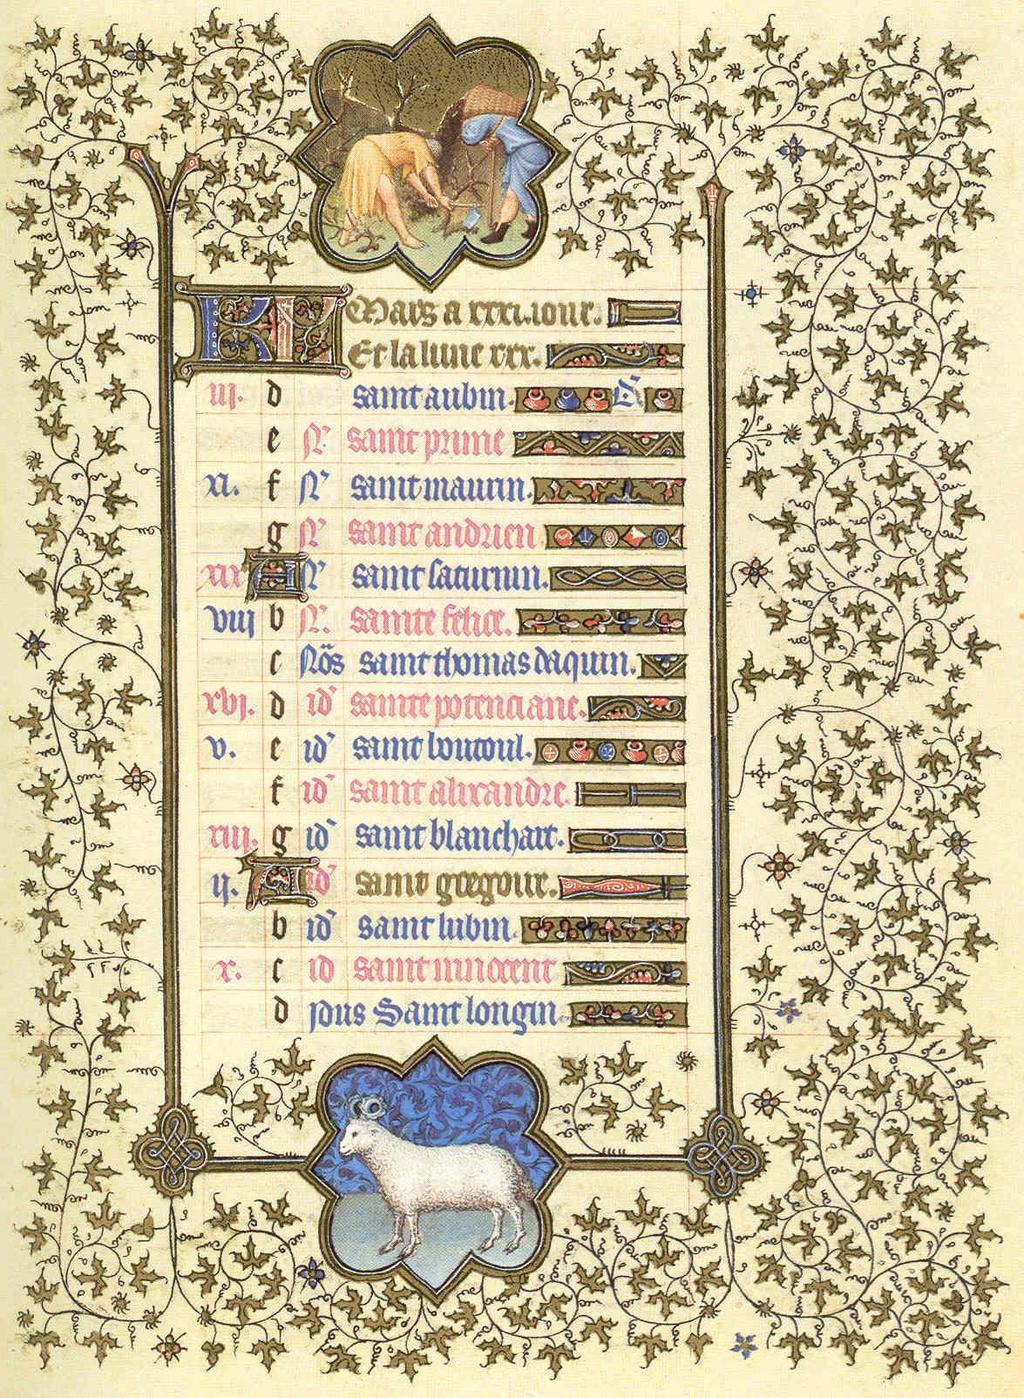 KL Mars a xxxi. iour.
Et la lune xxx.
iii. d saint aubin.
e N. saint prime
xi. f N. saint maurin.
g N. saint andrien
xix A N. saint saturnin.
viii b N. sainte felice.
c Nõs saint thomas daquin.
xvi. d id sainte potenciane.
v. e id saint boutoul.
f id saint alixandre.
xiii. g id saint blanchart.
ii. A id saint gregoire.
b id saint lubin
x. c id saint innocent
d idus Saint longin.